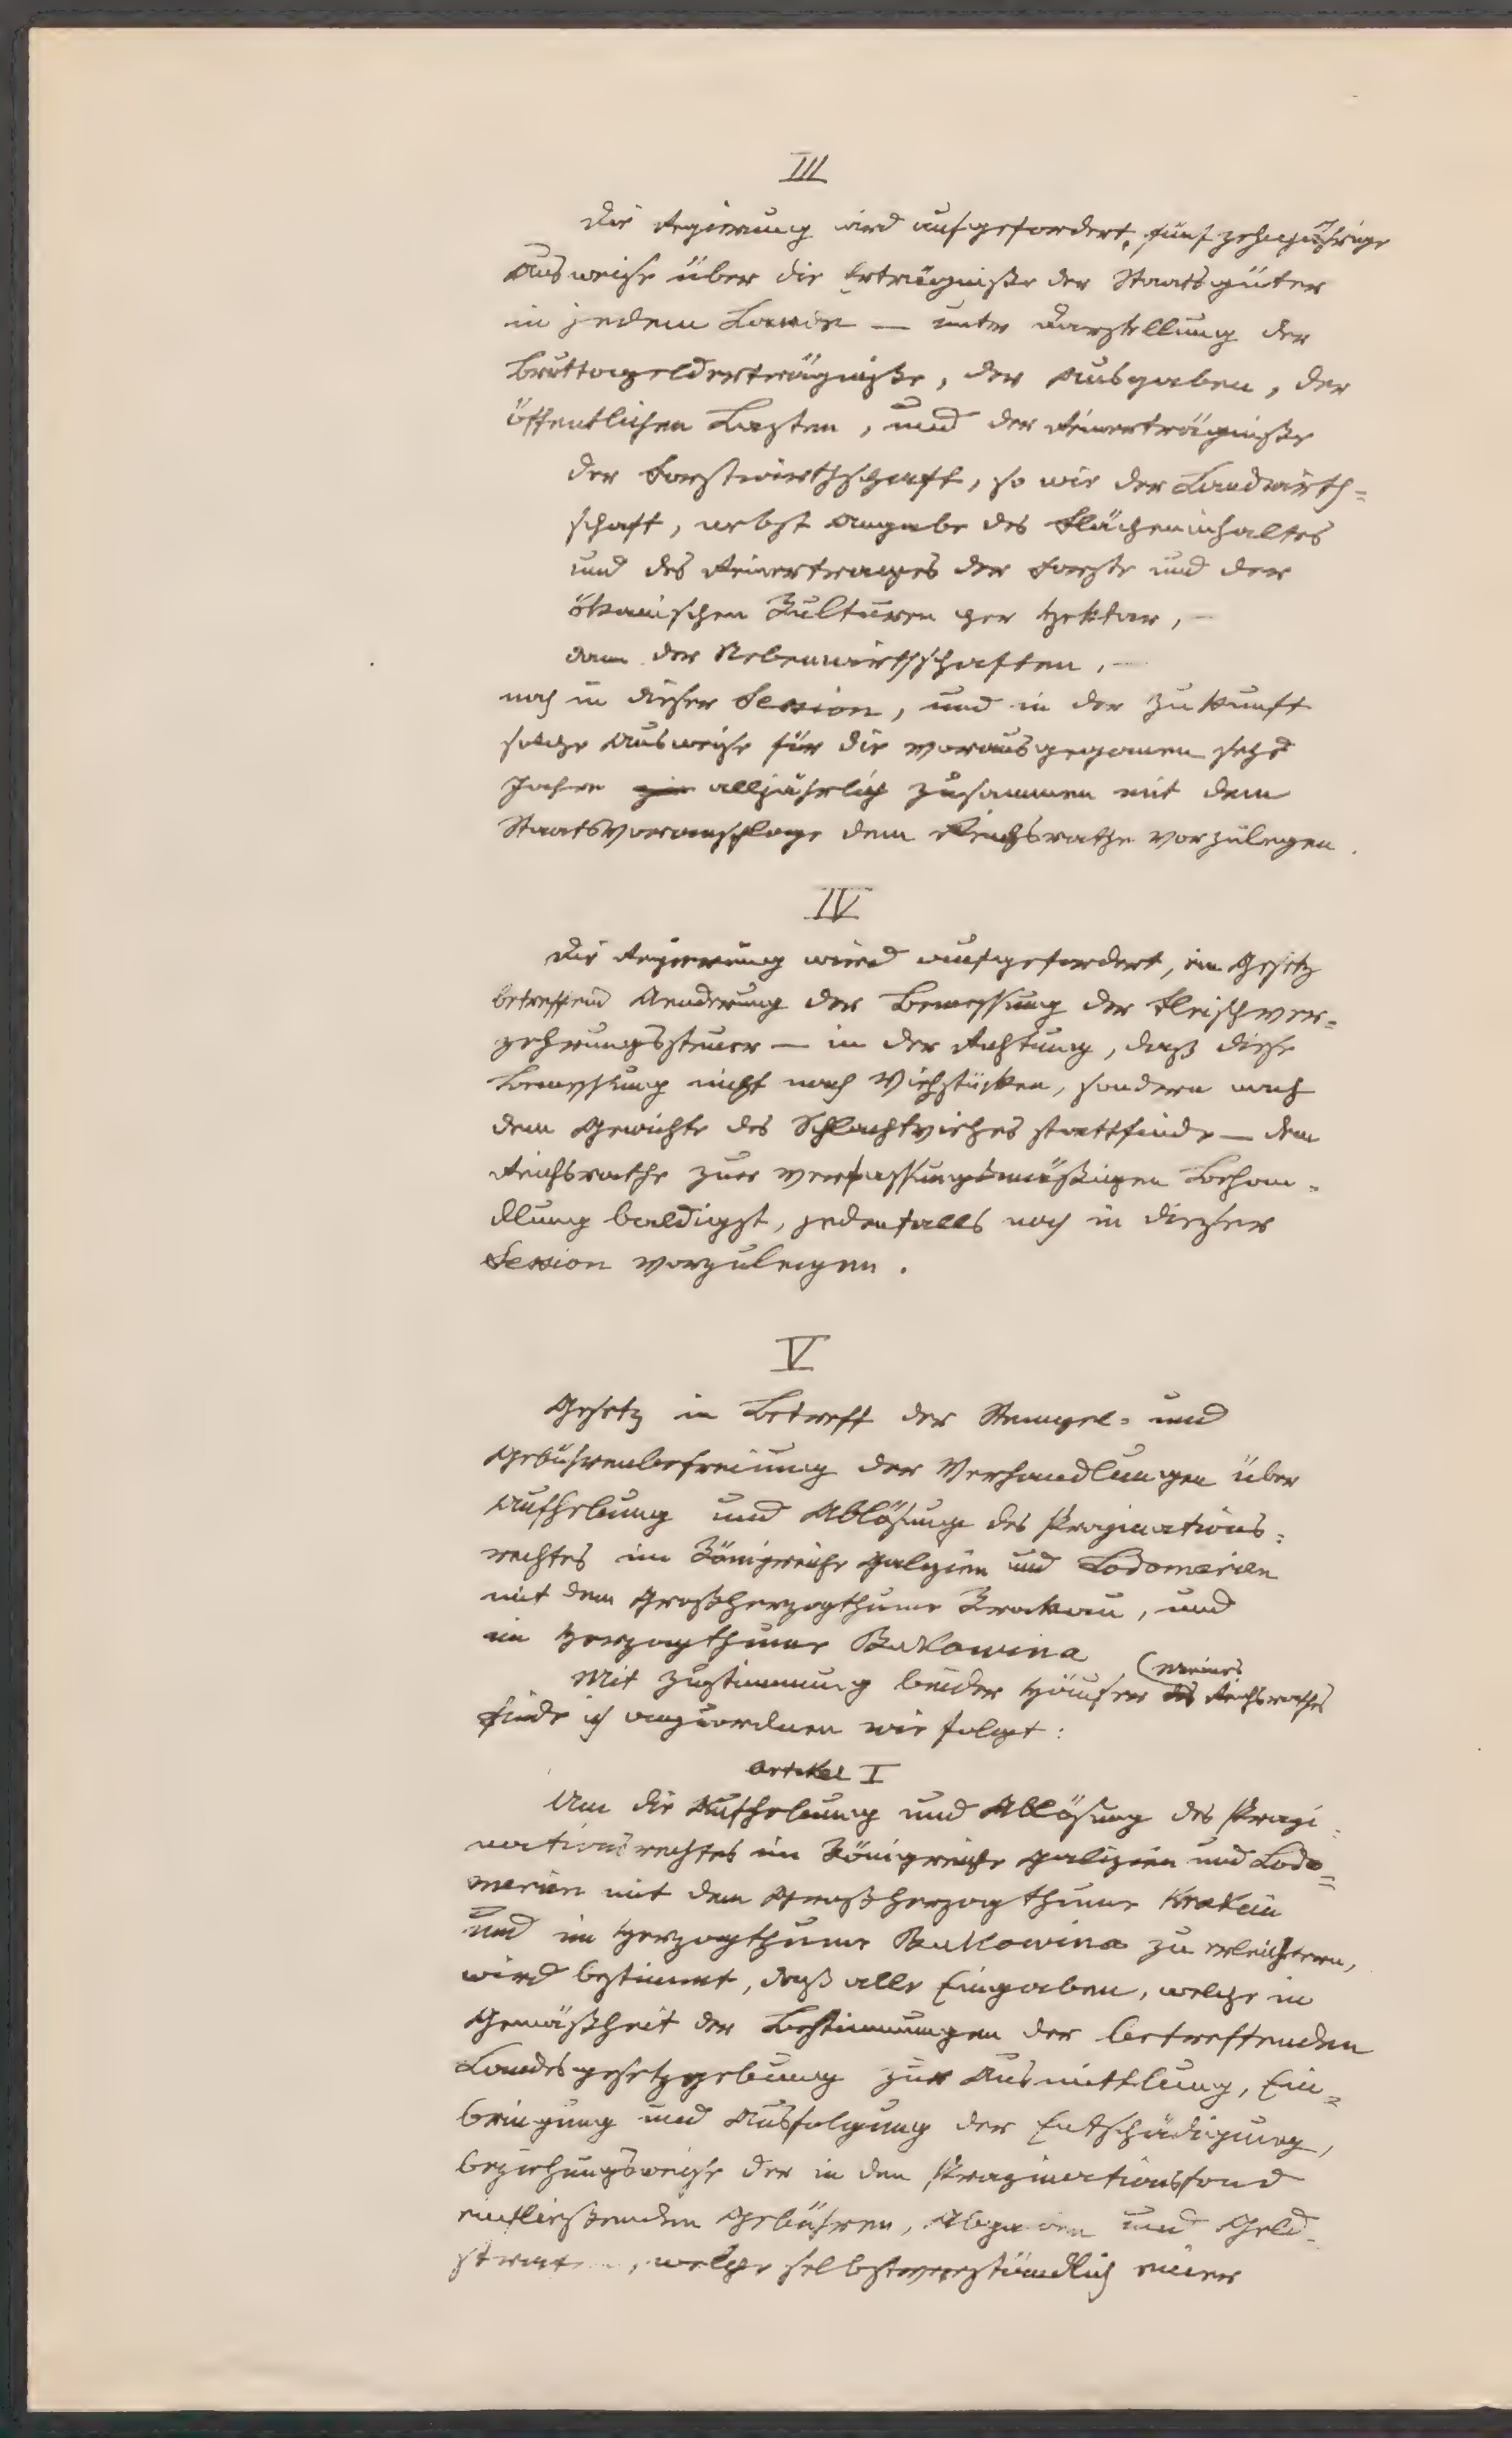 III
Die Regierung wird aufgefordert, fünfzehnjährige
Ausweise über die Erträgniße der Staatsgüter
in jedem Lande — unter Darstellung der
Bruttogelderträgniße, der Ausgaben, der
öffentlichen Lasten, und der Reinerträgniße
der Forstwirthschaft, so wie der Landwirth=
schaft, nebst Angabe des Flächeninhaltes
und des Reinertrages der Forste und der
ökonischen Kulturen per Hektar, —
dann der Nebenwirthschaften, —
noch in dieser Session, und in der Zukunft
solche Ausweise für die vorausgegangenen sechs
Jahre alljährlich zusammen mit dem
Staatsvoranschlage dem Reichsrathe vorzulegen.
IV
Die Regierung wird aufgefordert, ein Gesetz
betreffend Aenderung der Bemessung der Fleischver=
zehrungssteuer — in der Richtung, daß diese
Bemessung nicht nach Viehstücken, sondern nach
dem Gewichte des Schlachtviehes stattfinde — dem
Reichsrathe zur verfassungsmäßigen Behan=
dlung baldigst, jedenfalls noch in dieser
Session vorzulegen.
V
Gesetz in Betreff der Stempel= und
Gebührenbefreiung der Verhandlungen über
Aufhebung und Ablösung des Propinations=
rechtes im Königreiche Galizien und Lodomerien
mit dem Großherzogthume Krakau, und
im Herzogthume Bukowina
Mit Zustimmung beider Häuser (Meines des Reichsrathes
finde ich anzuordnen wie folgt:
Artikel I
Um die Aufhebung und Ablösung des Propi=
nationsrechtes im Königreiche Galizien und Lodo=
merien mit dem Großherzogthume Krakau
und im Herzogthume Bukowina zu erleichtern,
wird bestimmt, daß alle Eingaben, welche in
Gemäßheit der Bestimmungen der betreffenden
Landesgesetzgebung zur Ausmittlung, Ein=
bringung und Ausfolgung der Entschädigung,
beziehungsweise der in den Propinationsfond
einfließenden Gebühren, Abgaben und Geld=
, welche selbstverständlich einer